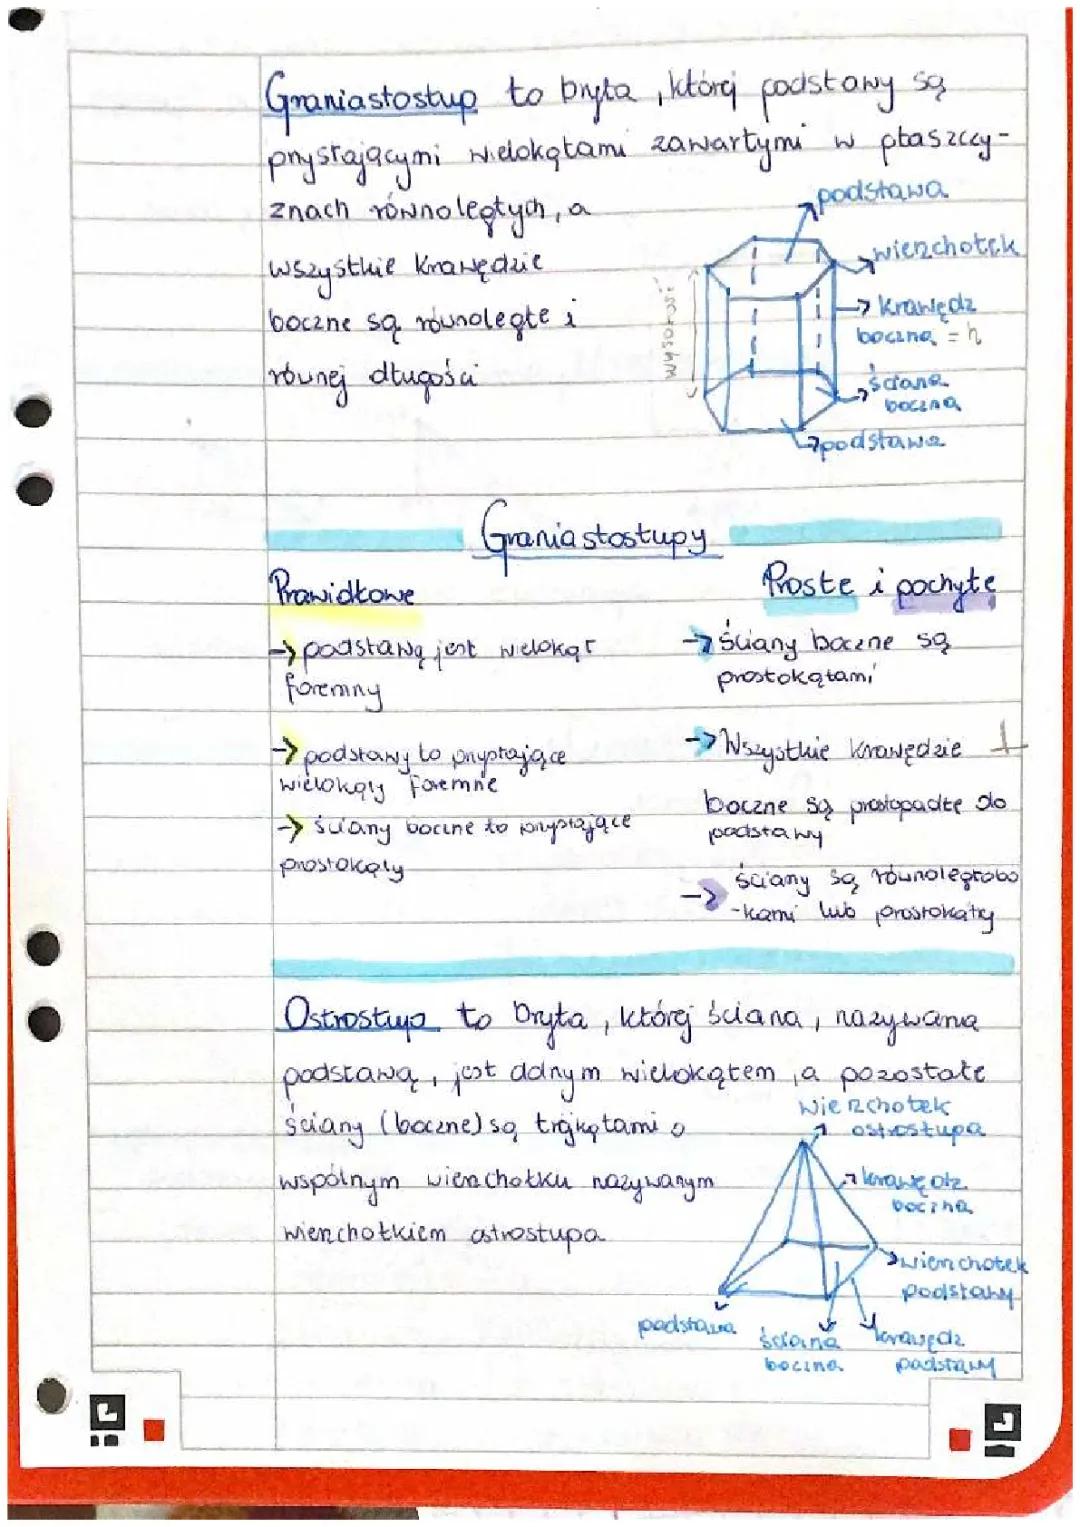 Graniastosłup to bryła, której podstawy są
przystającymi wielokątami zawartymi w płaszczy-
znach równoległych, a
wszystkie krawędzie
boczne są równoległe i
równej długości
podstawa
wierzchołek
krawędz
boczna = h
ściana
boczna
podstawa
wysokość
Graniastosłupy
Prawidłowe
→ podstawą jest wielokąt
foremny
→ podstawy to przystające
wielokąty foremne
→ ściany boczne to przystające
prostokąty
Proste i pochyłe
→ ściany boczne są
prostokątami
→ Wszystkie krawędzie ⊥
boczne są prostopadłe do
podstawy
→ ściany są równoległobo
-kami lub prostokąty
Ostrosłup to bryła, której ściana, nazywana
podstawą, jest dolnym wielokątem, a pozostałe
ściany (boczne) są trójkątami o
wspólnym wierzchołku nazywanym
wierzchołkiem ostrosłupa
wierzchołek
ostrosłupa
krawędz
boczna
wierzchołek
podstawy
podstawa
ściana
boczna
krawędz
podstawy